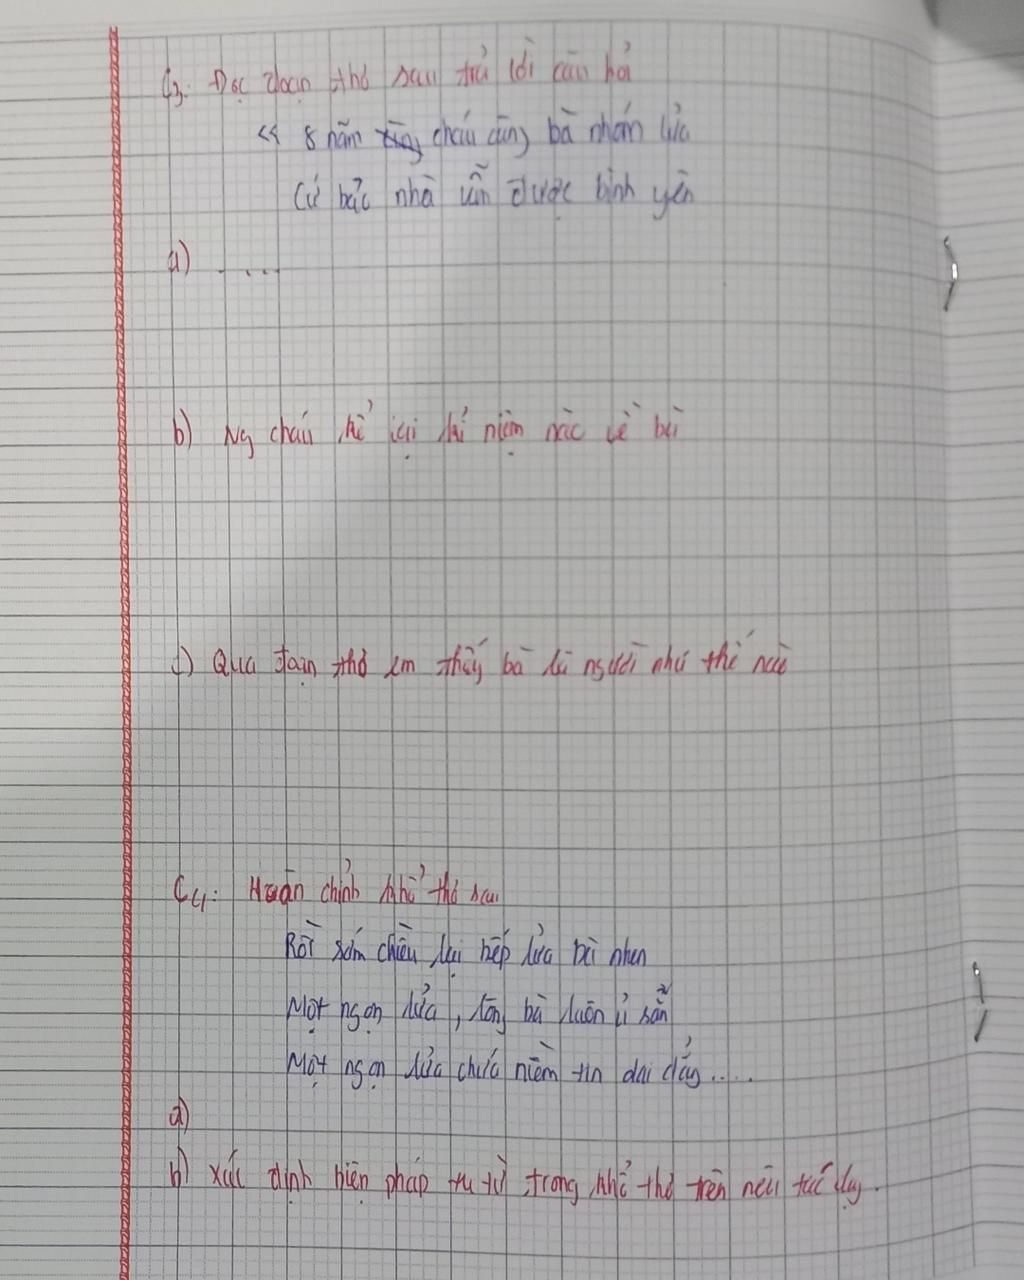 C3. Đọc đoạn thơ sau trả lời câu hỏi
<< 8 năm ròng cháu cùng bà nhóm lửa
Cứ bảo nhà vẫn được bình yên
a) ....
b) Ng cháu kể lại kỉ niệm nào về bà
c) Qua đoạn thơ em thấy bà là người như thế nào
C4: Hoàn chỉnh khổ thơ sau
Rồi sớm chiều lại bếp lửa bà nhen
Một ngọn lửa, lòng bà luôn ủ sẵn
Một ngọn lửa chứa niềm tin dai dẳng.....
a)
b) xác định biện pháp tu từ trong khổ thơ trên nêu tác dụng.